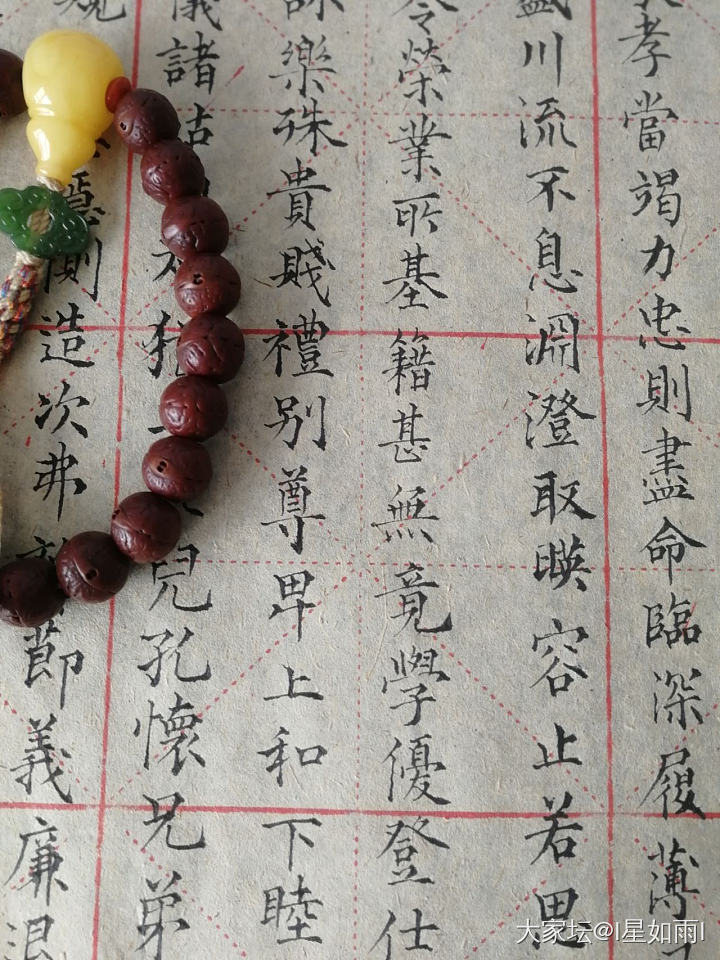 孝當竭力忠則盡命臨深履薄
盛川流不息淵澄取暎容止若思
令榮業所基籍甚無竟學優登仕
詠樂殊貴賤禮別尊卑上和下睦
儀諸姑猶兒孔懷兄弟
規隱惻造次弗節義廉退
大家坛@l星如雨l